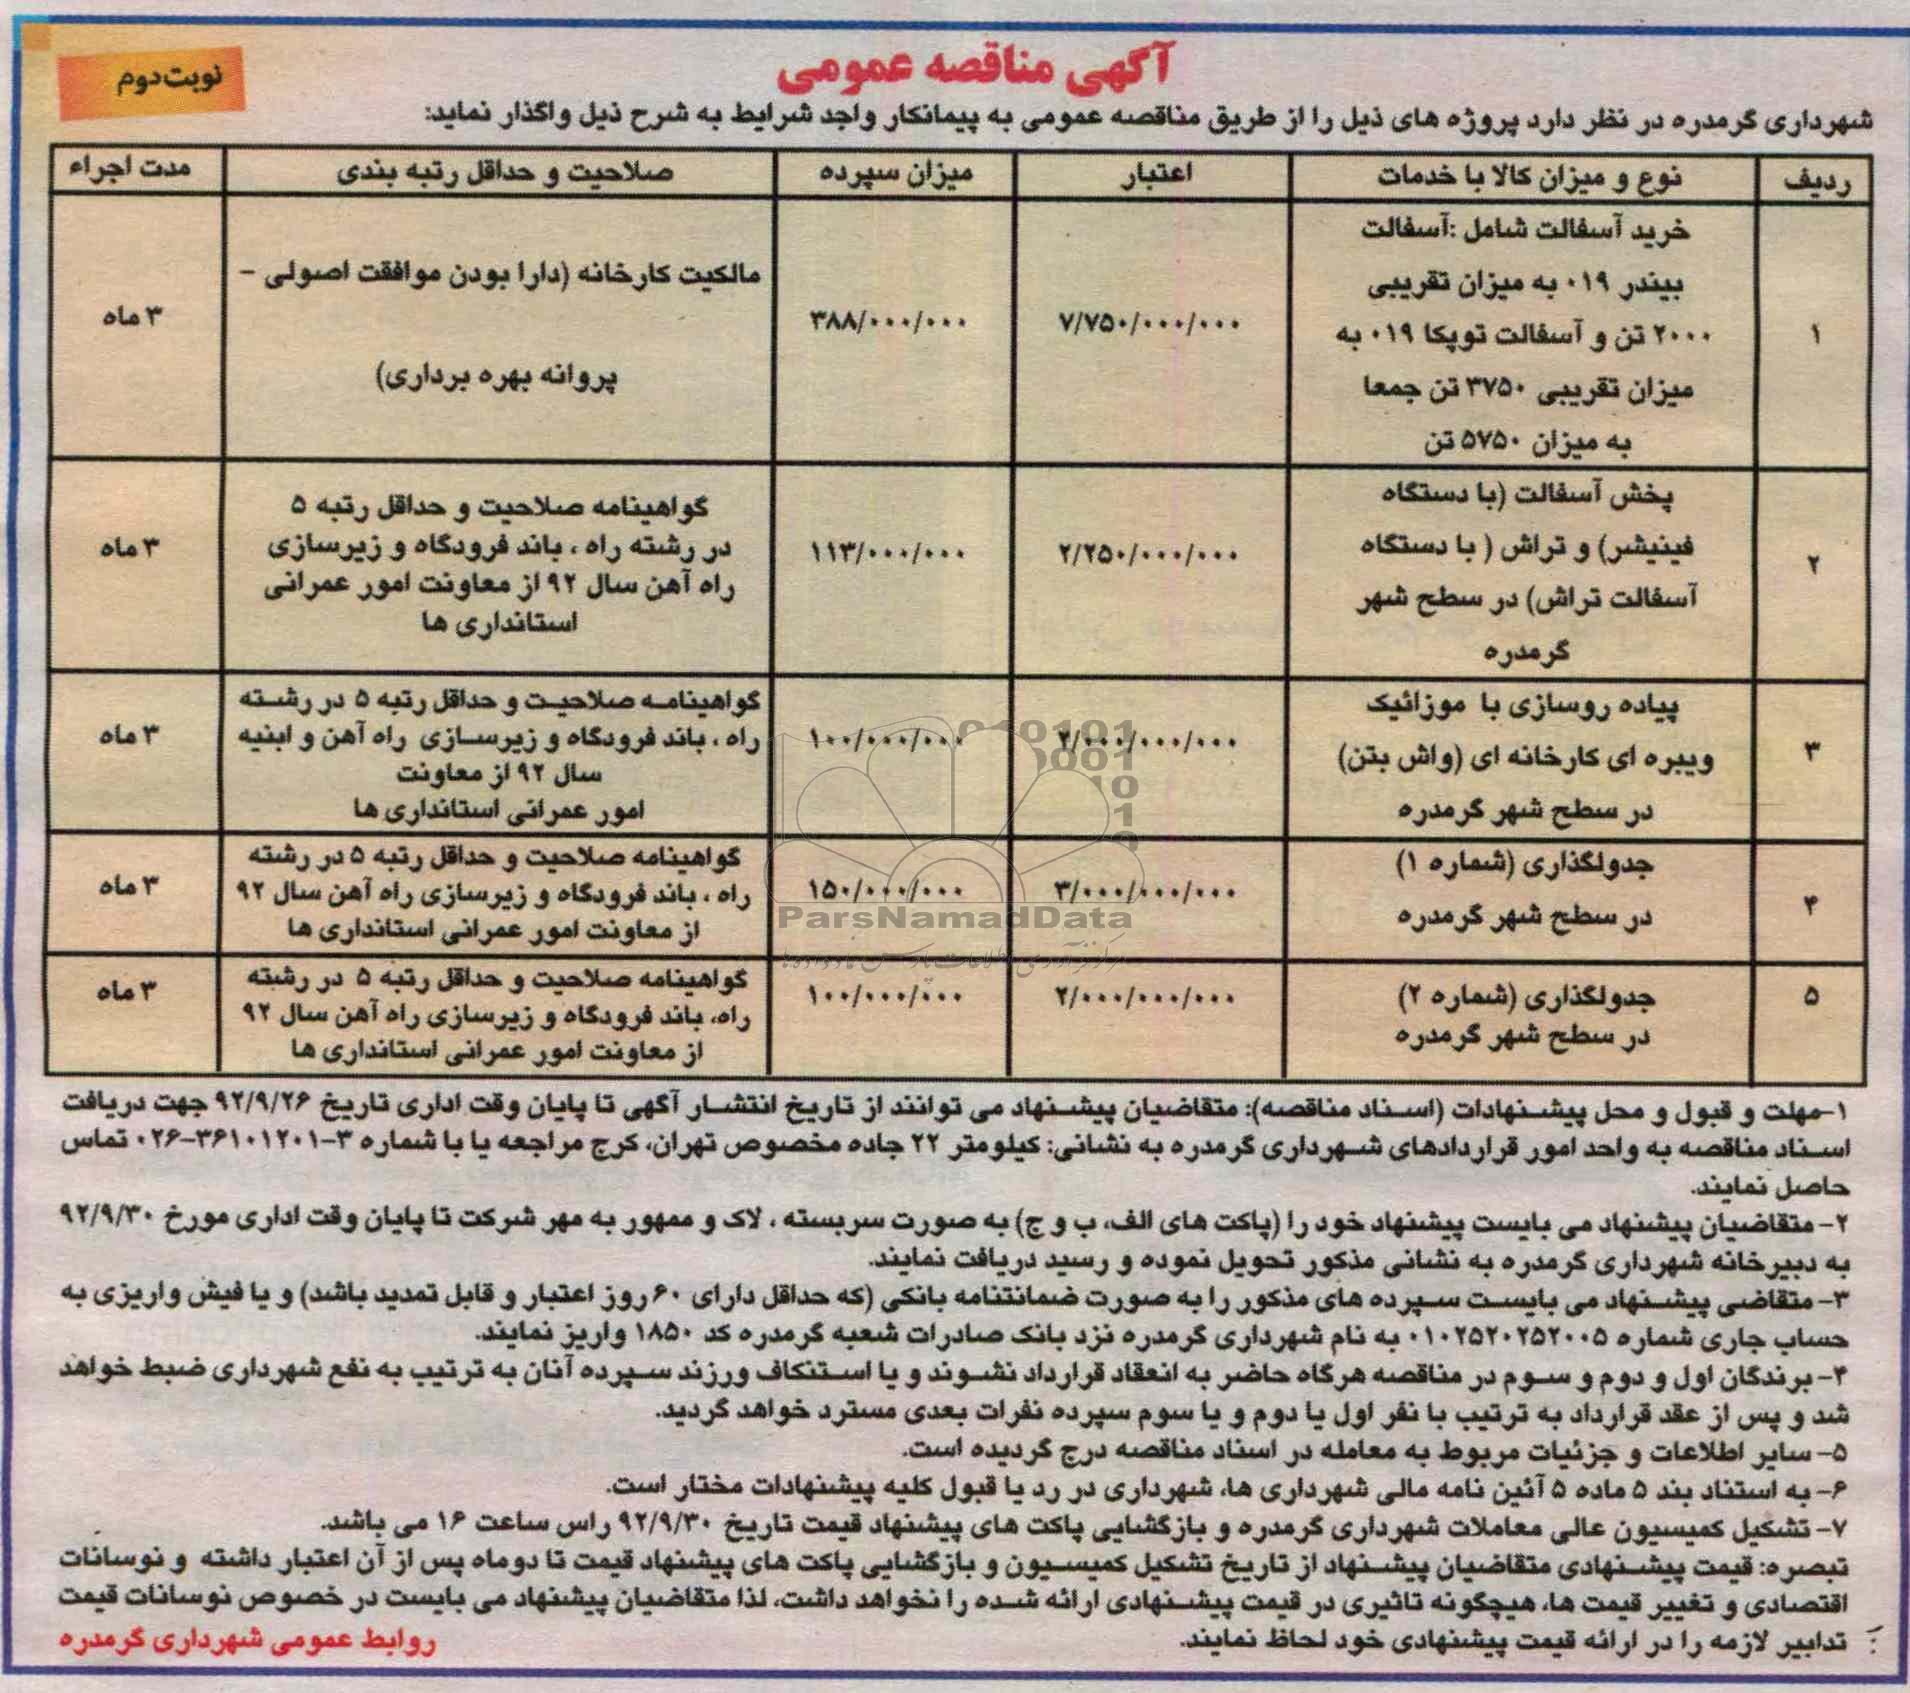 آگهی مناقصه عمومی
نوبت دوم
شهرداری گرمدره در نظر دارد پروژه های ذیل را از طریق مناقصه عمومی به پیمانکار واجد شرایط به شرح ذیل واگذار نماید:
ردیف نوع و میزان کالا یا خدمات اعتبار میزان سپرده صلاحیت و حداقل رتبه بندی مدت اجراء
۱
خرید آسفالت شامل :آسفالت
بیندر ۰۱۹ به میزان تقریبی
۲۰۰۰ تن و آسفالت توپکا ۰۱۹ به
میزان تقریبی ۳۷۵۰ تن جمعا
به میزان ۵۷۵۰ تن
۷/۷۵۰/۰۰۰/۰۰۰
۳۸۸/۰۰۰/۰۰۰
مالکیت کارخانه (دارا بودن موافقت اصولی –
پروانه بهره برداری)
۳ ماه
۲
پخش آسفالت (با دستگاه
فینیشر) و تراش ( با دستگاه
آسفالت تراش) در سطح شهر
گرمدره
۲/۲۵۰/۰۰۰/۰۰۰
۱۱۳/۰۰۰/۰۰۰
گواهینامه صلاحیت و حداقل رتبه ۵
در رشته راه ، باند فرودگاه و زیرسازی
راه آهن سال ۹۲ از معاونت امور عمرانی
استانداری ها
۳ ماه
۳
پیاده روسازی با موزائیک
ویبره ای کارخانه ای (واش بتن)
در سطح شهر گرمدره
۲/۰۰۰/۰۰۰/۰۰۰
۱۰۰/۰۰۰/۰۰۰
گواهینامه صلاحیت و حداقل رتبه ۵ در رشته
راه ، باند فرودگاه و زیرسازی راه آهن و ابنیه
سال ۹۲ از معاونت
امور عمرانی استانداری ها
۳ ماه
۴
جدولگذاری (شماره ۱)
در سطح شهر گرمدره
۳/۰۰۰/۰۰۰/۰۰۰
۱۵۰/۰۰۰/۰۰۰
گواهینامه صلاحیت و حداقل رتبه ۵ در رشته
راه ، باند فرودگاه و زیرسازی راه آهن سال ۹۲
از معاونت امور عمرانی استانداری ها
۳ ماه
ParsNamadData
۵
جدولگذاری (شماره ۲)
در سطح شهر گرمدره
۲/۰۰۰/۰۰۰/۰۰۰
۱۰۰/۰۰۰/۰۰۰
گواهینامه صلاحیت و حداقل رتبه ۵ در رشته
راه، باند فرودگاه و زیرسازی راه آهن سال ۹۲
از معاونت امور عمرانی استانداری ها
۳ ماه
۱-مهلت و قبول و محل پیشنهادات (اسناد مناقصه): متقاضیان پیشنهاد می توانند از تاریخ انتشار آگهی تا پایان وقت اداری تاریخ ۹۲/۹/۲۶ جهت دریافت
اسناد مناقصه به واحد امور قراردادهای شهرداری گرمدره به نشانی: کیلومتر ۲۲ جاده مخصوص تهران، کرج مراجعه یا با شماره ۳-۳۶۱۰۱۲۰۱-۰۲۶ تماس
حاصل نمایند.
۲- متقاضیان پیشنهاد می بایست پیشنهاد خود را (پاکت های الف، ب و ج) به صورت سربسته ، لاک و ممهور به مهر شرکت تا پایان وقت اداری مورخ ۹۲/۹/۳۰
به دبیرخانه شهرداری گرمدره به نشانی مذکور تحویل نموده و رسید دریافت نمایند.
۳- متقاضی پیشنهاد می بایست سپرده های مذکور را به صورت ضمانتنامه بانکی (که حداقل دارای ۶۰ روز اعتبار و قابل تمدید باشد) و یا فیش واریزی به
حساب جاری شماره ۰۱۰۲۵۲۰۲۵۲۰۰۵ به نام شهرداری گرمدره نزد بانک صادرات شعبه گرمدره کد ۱۸۵۰ واریز نمایند.
۴- برندگان اول و دوم و سوم در مناقصه هرگاه حاضر به انعقاد قرارداد نشوند و یا استنکاف ورزند سپرده آنان به ترتیب به نفع شهرداری ضبط خواهد
شد و پس از عقد قرارداد به ترتیب با نفر اول یا دوم و یا سوم سپرده نفرات بعدی مسترد خواهد گردید.
۵- سایر اطلاعات و جزئیات مربوط به معامله در اسناد مناقصه درج گردیده است.
۶- به استناد بند ۵ ماده ۵ آئین نامه مالی شهرداری ها، شهرداری در رد یا قبول کلیه پیشنهادات مختار است.
۷- تشکیل کمیسیون عالی معاملات شهرداری گرمدره و بازگشایی پاکت های پیشنهاد قیمت تاریخ ۹۲/۹/۳۰ راس ساعت ۱۶ می باشد.
تبصره: قیمت پیشنهادی متقاضیان پیشنهاد از تاریخ تشکیل کمیسیون و بازگشایی پاکت های پیشنهاد قیمت تا دوماه پس از آن اعتبار داشته و نوسانات
اقتصادی و تغییر قیمت ها، هیچگونه تاثیری در قیمت پیشنهادی ارائه شده را نخواهد داشت، لذا متقاضیان پیشنهاد می بایست در خصوص نوسانات قیمت
تدابیر لازمه را در ارائه قیمت پیشنهادی خود لحاظ نمایند.
روابط عمومی شهرداری گرمدره